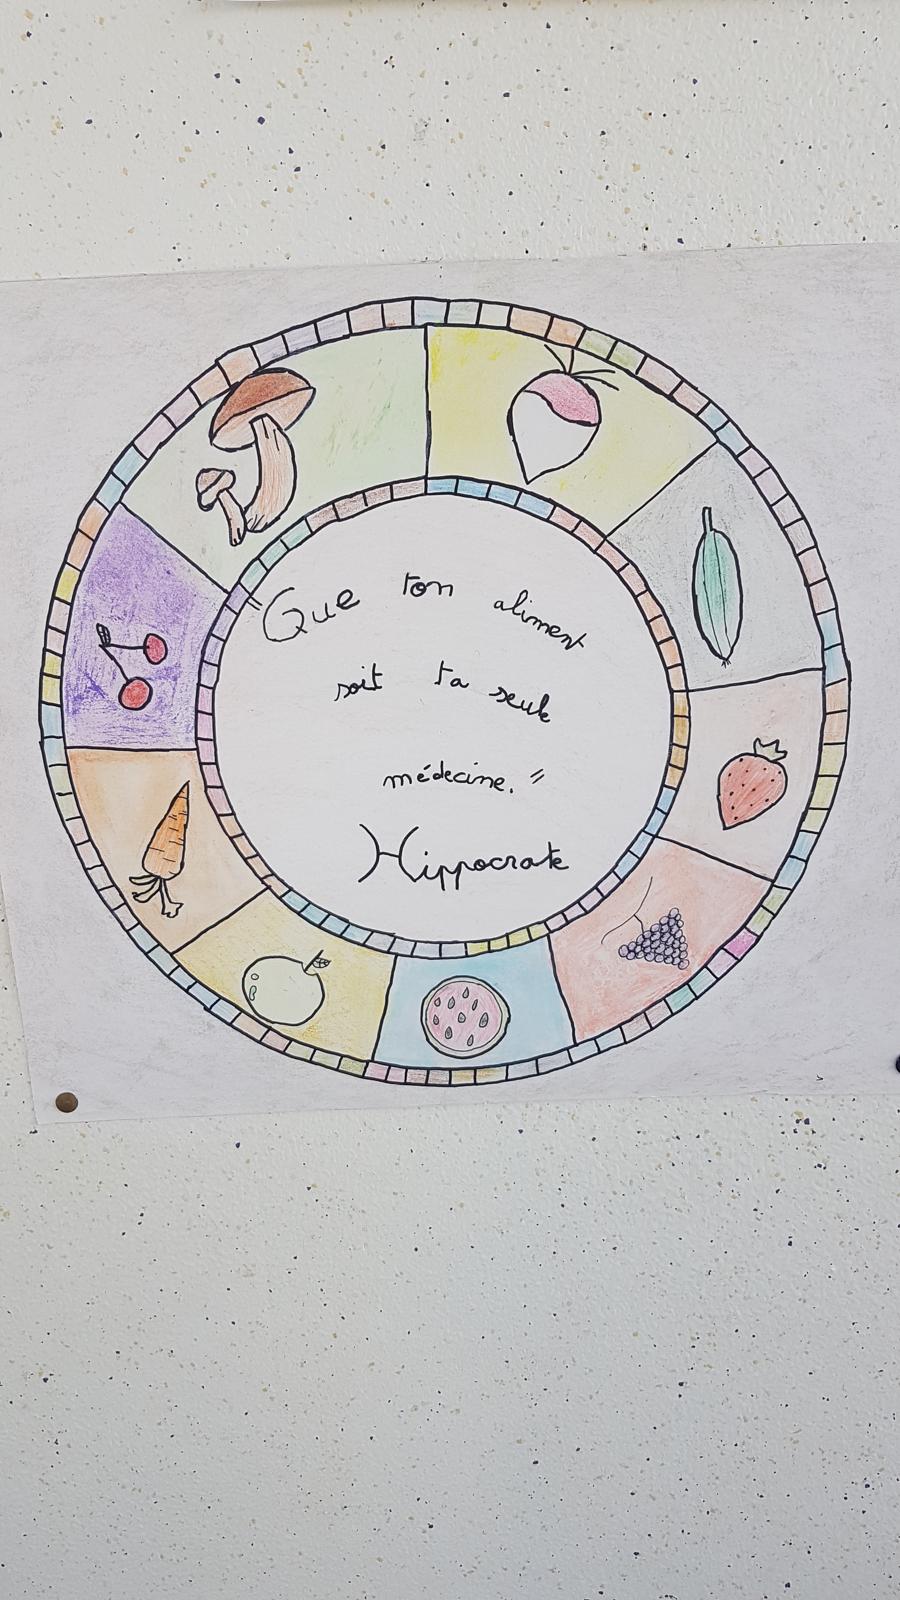 "Que ton aliment
soit ta seule
médecine."
Hippocrate